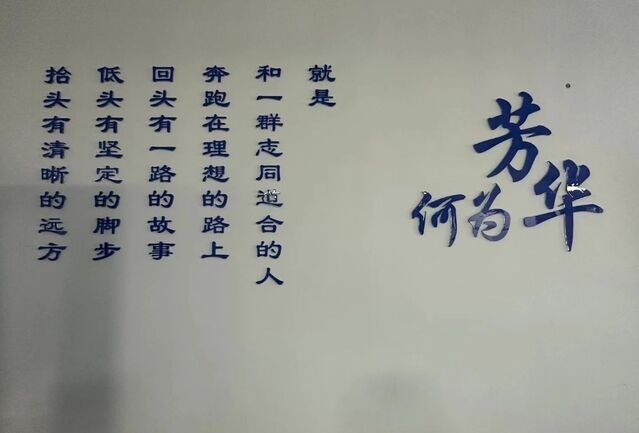 何为芳华
就是
和一群志同道合的人
奔跑在理想的路上
回头有一路的故事
低头有坚定的脚步
抬头有清晰的远方